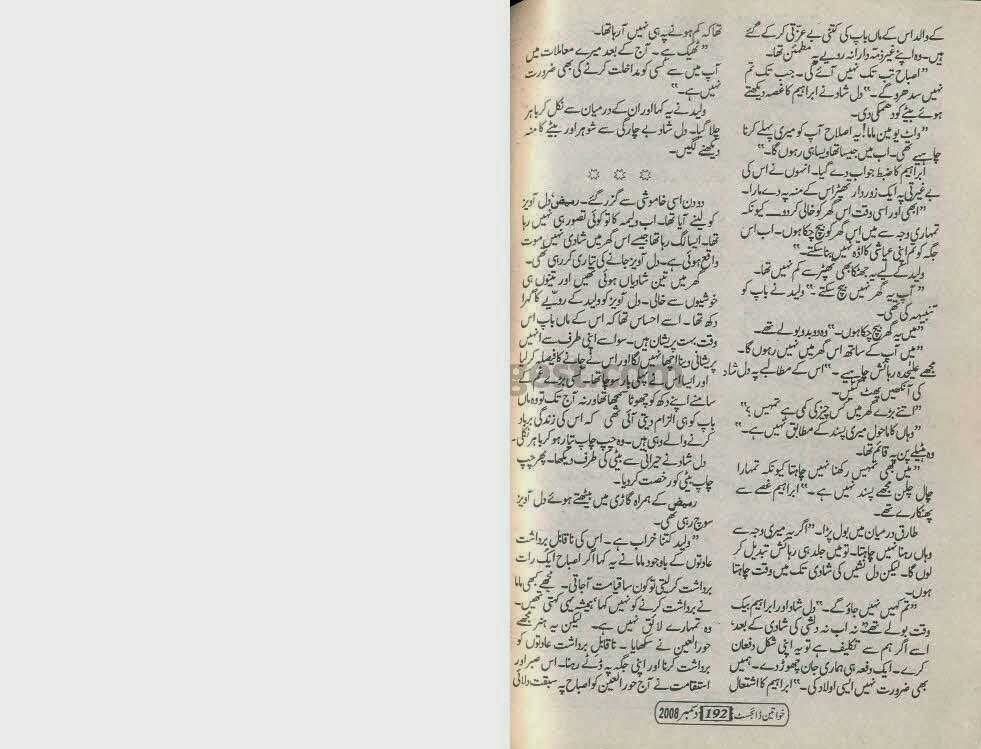 کے والد اس کے ماں باپ کی کتنی بے عزتی کر کے گئے
ہیں۔ وہ اپنے غیر ذمہ دارانہ رویے پہ مطمئن تھا۔
”اصباح تب تک نہیں آئے گی۔ جب تک تم
نہیں سدھرو گے۔“ دل شاد نے ابراہیم کا غصہ دیکھتے
ہوئے بیٹے کو دھمکی دی۔
”واٹ یو مین ماما! یہ اصلاح آپ کو میری پہلے کرنا
چاہیے تھی۔ اب میں جیسا تھا ویسا ہی رہوں گا۔“
ابراہیم کا ضبط جواب دے گیا۔ انہوں نے اس کی
بے غیرتی پہ ایک زوردار تھپڑ اس کے منہ پہ دے مارا۔
”ابھی اور اسی وقت اس گھر کو خالی کر دو۔ کیونکہ
تمہاری وجہ سے میں اس گھر کو بیچ چکا ہوں۔ اب اس
جگہ کو تم اپنی عیاشی کا اڈہ نہیں بنا سکتے۔“
ولید کے لیے یہ جھٹکا بھی تھپڑ سے کم نہیں تھا۔
”آپ یہ گھر نہیں بیچ سکتے۔“ ولید نے باپ کو
تنبیہہ کی تھی۔
”میں یہ گھر بیچ چکا ہوں۔“ وہ دوبدو بولے تھے۔
”میں آپ کے ساتھ اس گھر میں نہیں رہوں گا۔
مجھے علیحدہ رہائش چاہیے۔“ اس کے مطالبے پہ دل شاد
کی آنکھیں پھٹ گئیں۔
”اتنے بڑے گھر میں کس چیز کی کمی ہے تمہیں؟“
”وہاں کا ماحول میری پسند کے مطابق نہیں ہے۔“
وہ ہٹیلے پن پہ قائم تھا۔
”میں بھی تمہیں رکھنا نہیں چاہتا کیونکہ تمہارا
چال چلن مجھے پسند نہیں ہے۔“ ابراہیم غصے سے
پھنکارے تھے۔
طارق درمیان میں بول پڑا۔ ”اگر یہ میری وجہ سے
وہاں رہنا نہیں چاہتا۔ تو میں جلد ہی رہائش تبدیل کر
لوں گا۔ لیکن دل نشیں کی شادی تک میں وقت چاہتا
ہوں۔
”تم کہیں نہیں جاؤ گے۔“ دل شاد اور ابراہیم بیک
وقت بولے تھے ”نہ اب نہ دلشی کی شادی کے بعد‘
اسے اگر ہم سے تکلیف ہے تو یہ اپنی شکل دفعان
کرے۔ ایک دفعہ ہی ہماری جان چھوڑ دے۔ ہمیں
بھی ضرورت نہیں ایسی اولاد کی۔“ ابراہیم کا اشتعال
تھا کہ کم ہونے پہ ہی نہیں آ رہا تھا۔
”ٹھیک ہے۔ آج کے بعد میرے معاملات میں
آپ میں سے کسی کو مداخلت کرنے کی بھی ضرورت
نہیں ہے۔“
ولید نے یہ کہا اور ان کے درمیان سے نکل کر باہر
چلا گیا۔ دل شاد بے چارگی سے شوہر اور بیٹے کا منہ
دیکھنے لگیں۔
دو دن اسی خاموشی سے گزر گئے۔ رمیض‘ دل آویز
کو لینے آیا تھا۔ اب ولیمہ کا تو کوئی تصور ہی نہیں رہا
تھا۔ ایسا لگ رہا تھا جیسے اس گھر میں شادی نہیں موت
واقع ہوئی ہے۔ دل آویز جانے کی تیاری کر رہی تھی۔
گھر میں تین شادیاں ہوئی تھیں اور تینوں ہی
خوشیوں سے خالی۔ دل آویز کو ولید کے رویے کا گہرا
دکھ تھا۔ اسے احساس تھا کہ اس کے ماں باپ اس
وقت بہت پریشان ہیں۔ سو اسے اپنی طرف سے انہیں
پریشانی دینا اچھا نہیں لگا اور اس نے جانے کا فیصلہ کر لیا
اور ایسا اس نے پہلی بار سوچا تھا۔ کسی بڑے دکھ کے
سامنے اپنے دکھ کو چھوٹا سمجھا تھا ورنہ آج تک تو وہ ماں
باپ کو ہی الزام دیتی آئی تھی کہ اس کی زندگی برباد
کرنے والے وہی ہیں۔ وہ چپ چاپ تیار ہو کر باہر نکلی۔
دل شاد نے حیرانی سے بیٹی کی طرف دیکھا۔ پھر چپ
چاپ بیٹی کو رخصت کر دیا۔
رمیض کے ہمراہ گاڑی میں بیٹھتے ہوئے دل آویز
سوچ رہی تھی۔
”ولید کتنا خراب ہے۔ اس کی ناقابل برداشت
عادتوں کے باوجود ماما نے یہ کہا اگر اصباح ایک رات
برداشت کر لیتی تو کون سا قیامت آ جاتی۔ مجھے کبھی ماما
نے برداشت کرنے کو نہیں کہا‘ ہمیشہ یہی کہتی تھیں۔
وہ تمہارے لائق نہیں ہے۔ لیکن یہ ہنر مجھے
حورالعین نے سکھایا۔ ناقابل برداشت عادتوں کو
برداشت کرنا اور اپنی جگہ پہ ڈٹے رہنا۔ اس صبر اور
استقامت نے آج حورالعین کو اصباح پہ سبقت دلائی
خواتین ڈائجسٹ 192 دسمبر 2008
gest.com